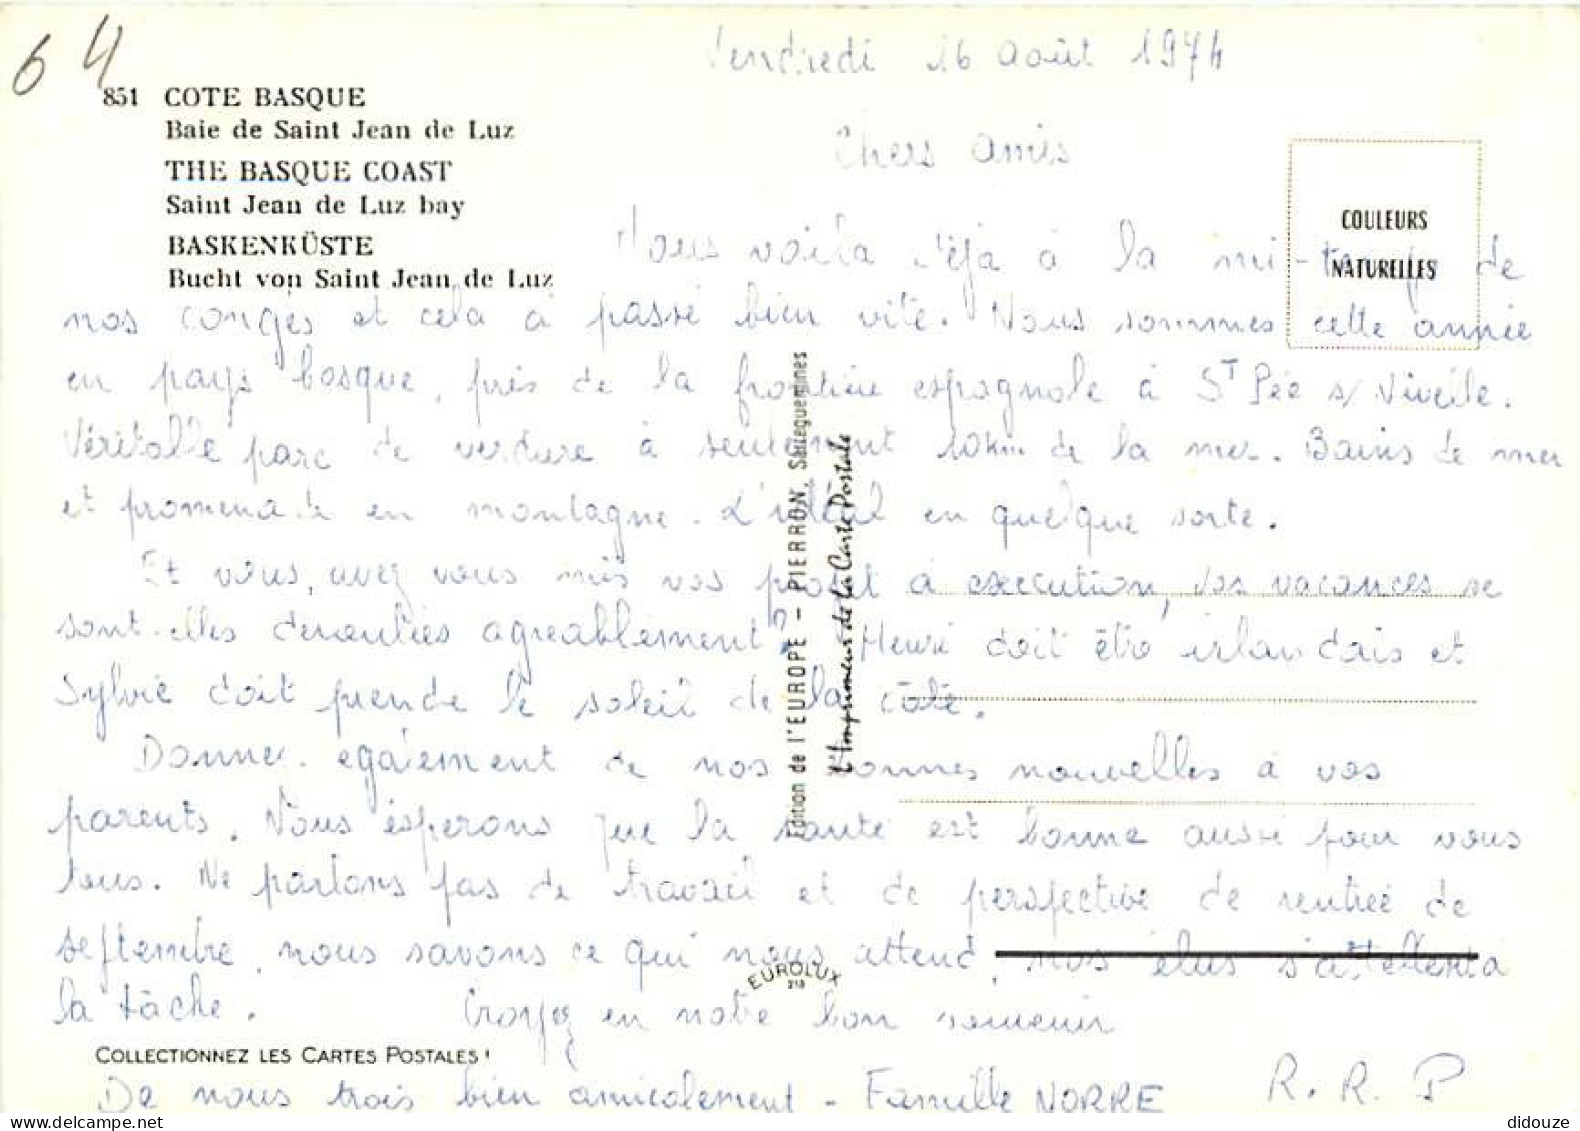 64
851 COTE BASQUE
Baie de Saint Jean de Luz
THE BASQUE COAST
Saint Jean de Luz bay
BASKENKÜSTE
Bucht von Saint Jean de Luz
COULEURS
NATURELLES
Vendredi 16 Août 1974
Chers amis
Nous voila déjà à la mi-temps de
nos congés et cela à passé bien vite. Nous sommes cette année
en pays basque, près de la frontière espagnole à St Pée s/ Nivelle.
Véritable parc de verdure à seulement 10 km de la mer. Bains de mer
et promenade en montagne. L'idéal en quelque sorte.
Et vous, avez vous mis vos projet à execution, vos vacances se
sont-elles deroulées agreablement? Henri doit être irlandais et
Sylvie doit prendre le soleil de la côte.
Donnez egalement de nos bonnes nouvelles à vos
parents. Nous esperons que la santé est bonne aussi pour vous
tous. Ne parlons pas de travail et de perspective de rentrée de
septembre, nous savons ce qui nous attend, nos élus s'attellent à
la tâche. Croyez en notre bon souvenir
De nous trois bien amicalement - Famille NORRE R.R.P
Edition de l'EUROPE - PIERRON, Sarreguemines
l'Imprimeur de la Carte Postale
EUROLUX
213
COLLECTIONNEZ LES CARTES POSTALES !
didouze